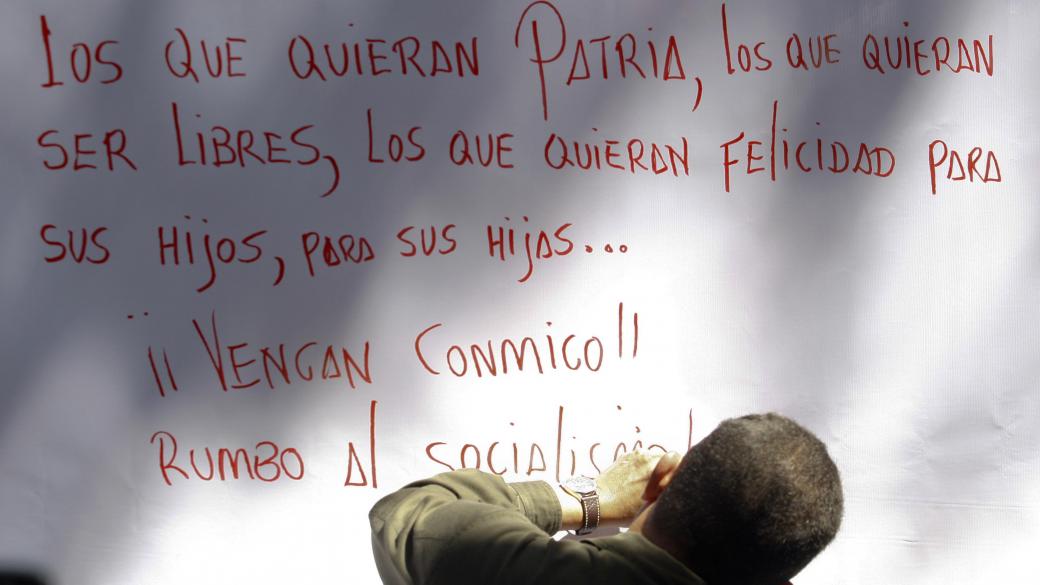 LOS QUE QUIERAN PATRIA, LOS QUE QUIERAN
SER LIBRES, LOS QUE QUIERAN FELICIDAD PARA
SUS HIJOS, PARA SUS HIJAS...
¡¡VENGAN CONMIGO!!
RUMBO AL